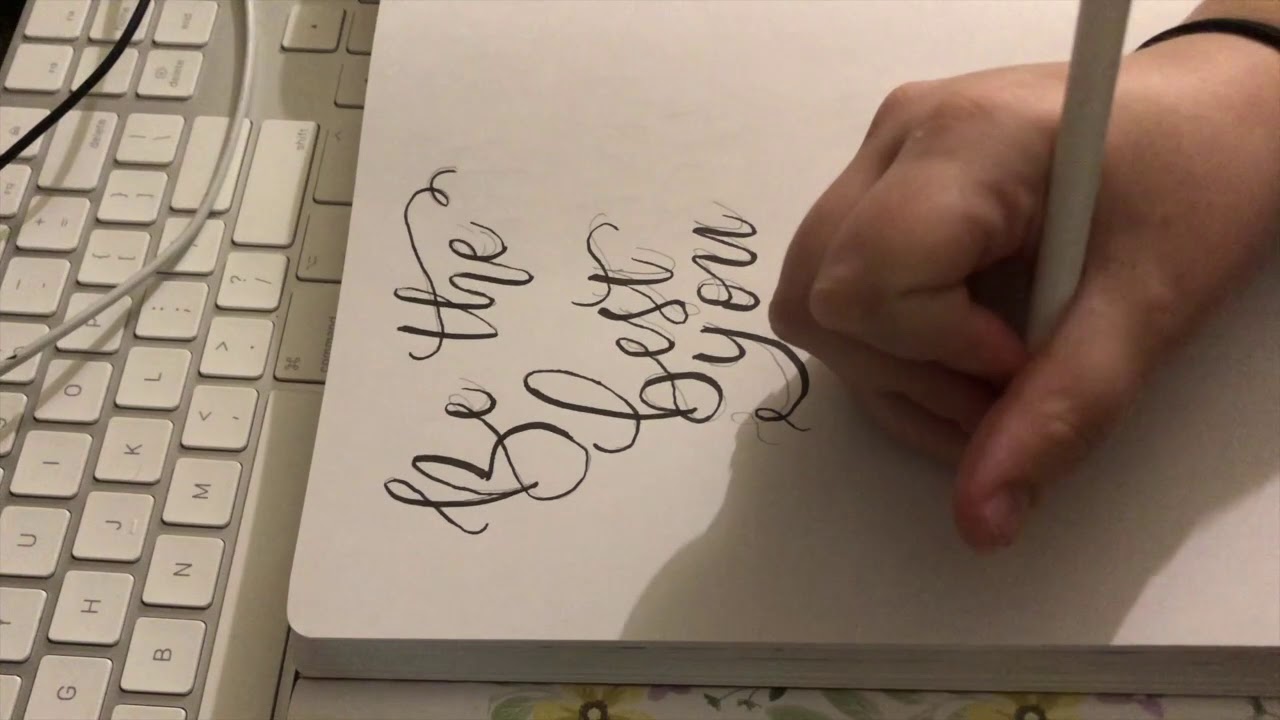 Be the
Best
you
delete
shift
command
delete
end
U
I
O
P
L
K
J
H
G
M
N
B